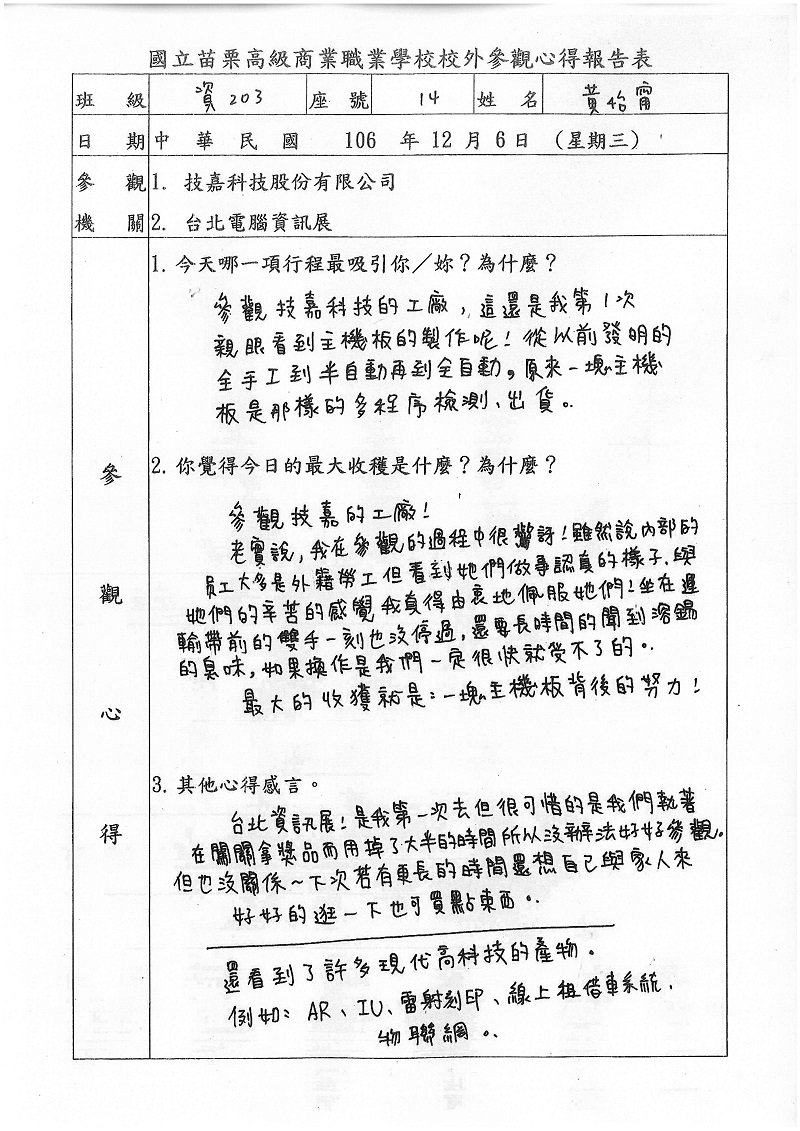 國立苗栗高級商業職業學校校外參觀心得報告表
班級 資203 座號 14 姓名 黃怡甯
日期 中華民國 106 年 12 月 6 日 (星期三)
參觀機關
1. 技嘉科技股份有限公司
2. 台北電腦資訊展
參觀心得
1. 今天哪一項行程最吸引你/妳？為什麼？
參觀技嘉科技的工廠，這還是我第1次
親眼看到主機板的製作呢！從以前發明的
全手工到半自動再到全自動。原來一塊主機
板是那樣的多程序檢測、出貨。
2. 你覺得今日的最大收穫是什麼？為什麼？
參觀技嘉的工廠！
老實說，我在參觀的過程中很驚訝！雖然說內部的
員工大多是外籍勞工但看到她們做事認真的樣子，與
她們的辛苦的感覺我真得由衷地佩服她們！坐在運
輸帶前的雙手一刻也沒停過，還要長時間的聞到溶錫
的臭味，如果換作是我們一定很快就受不了的。
最大的收獲就是：一塊主機板背後的努力！
3. 其他心得感言。
台北資訊展！是我第一次去但很可惜的是我們執著
在闖關拿獎品而用掉了大半的時間所以沒辦法好好參觀。
但也沒關係～下次若有更長的時間還想自己與家人來
好好的逛一下也可買點東西。
還看到了許多現代高科技的產物。
例如：AR、IU、雷射刻印、線上租借車系統、
物聯網。